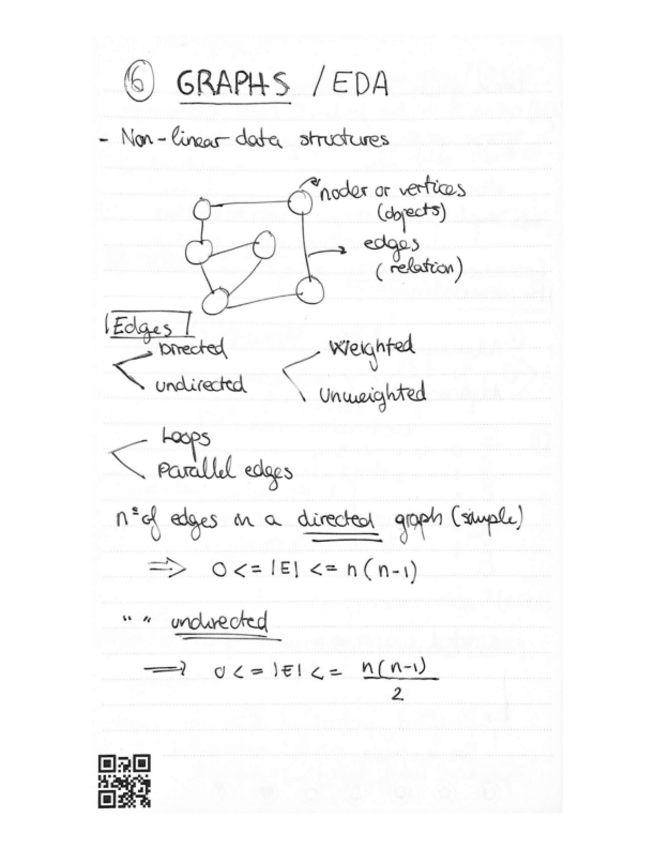 6 GRAPHS / EDA
- Non-linear data structures
nodes or vertices
(objects)
edges
(relation)
Edges
Directed
undirected
Weighted
Unweighted
Loops
Parallel edges
nº of edges in a directed graph (simple)
⇒ 0 <= |E| <= n(n-1)
" " undirected
⇒ 0 <= |E| <= n(n-1)
2